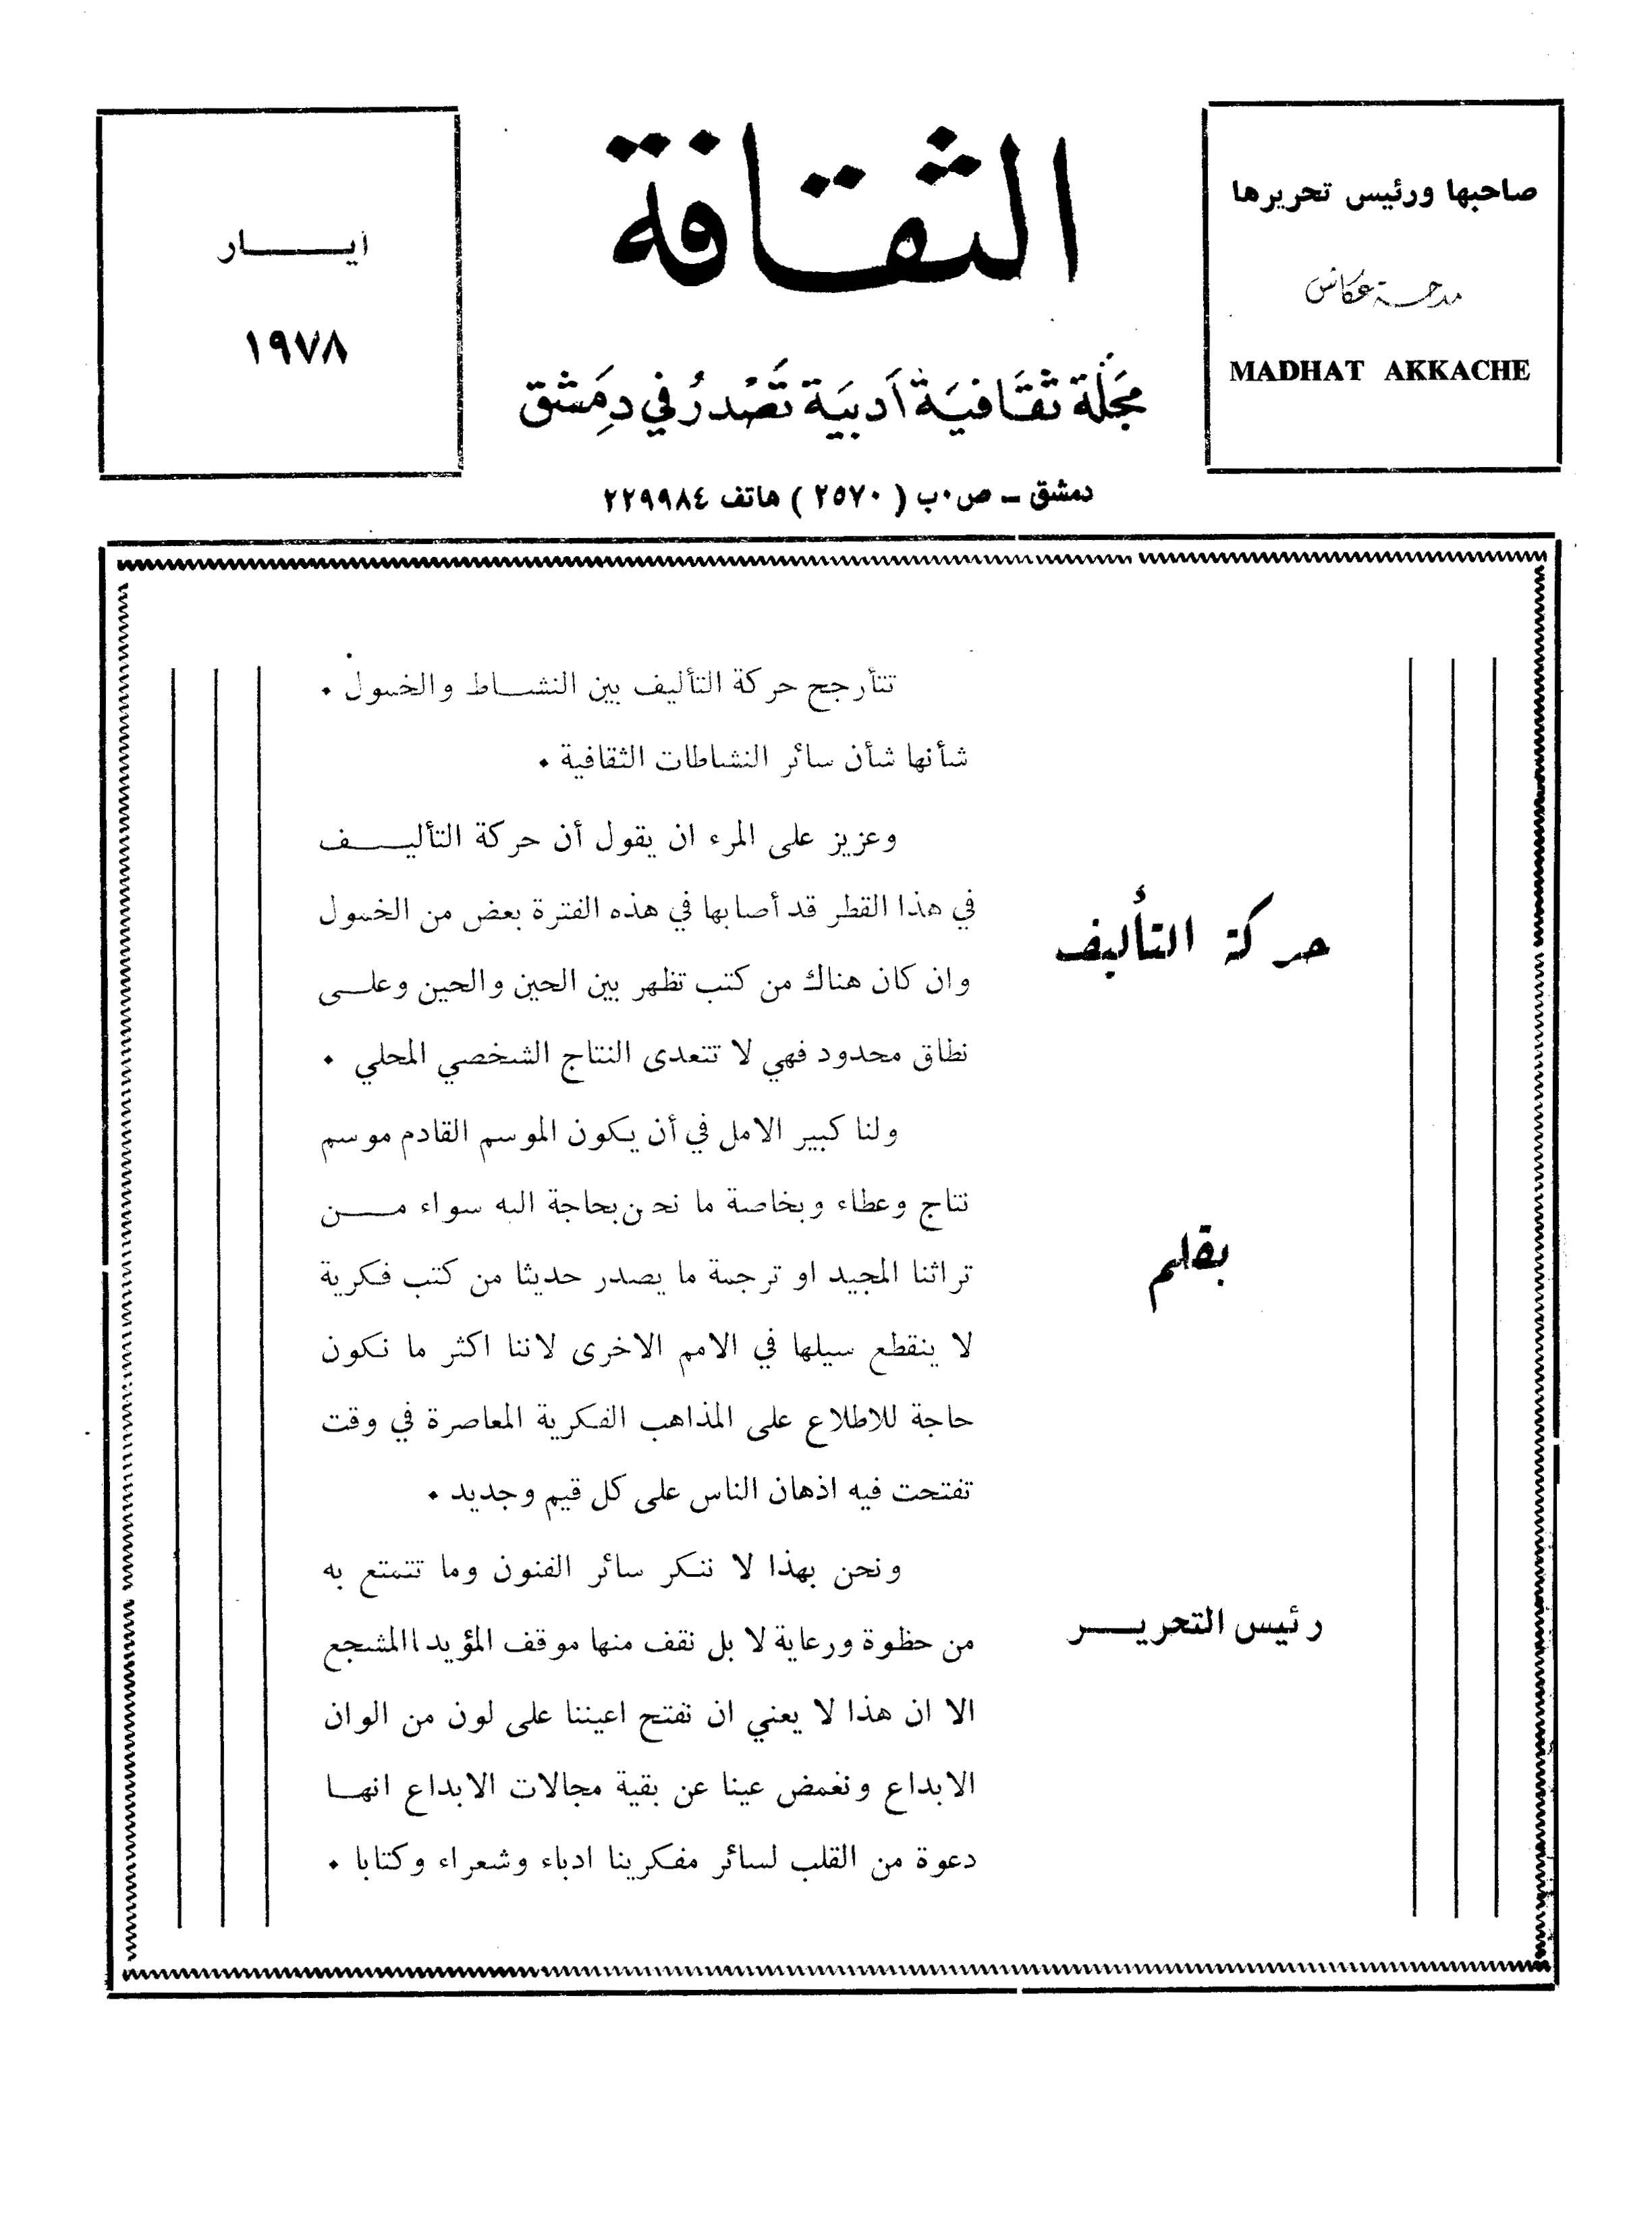 صاحبها ورئيس تحريرها
مدحة عكاش
MADHAT AKKACHE
الثقافة
مَجَلّة ثقَافيَة أَدبيَة تَصْدرُ في دِمَشق
دمشق ــ ص٠ب ( ٢٥٧٠ ) هاتف ٢٢٩٩٨٤
أيـــــار
١٩٧٨
حركة التأليف
بقلم
رئيس التحريــــر
تتأرجح حركة التأليف بين النشــاط والخمول ٠
شأنها شأن سائر النشاطات الثقافية ٠
وعزيز على المرء ان يقول أن حركة التأليـــــف
في هذا القطر قد أصابها في هذه الفترة بعض من الخمول
وان كان هناك من كتب تظهر بين الحين والحين وعلـــى
نطاق محدود فهي لا تتعدى النتاج الشخصي المحلي ٠
ولنا كبير الامل في أن يكون الموسم القادم موسم
نتاج وعطاء وبخاصة ما نحن بحاجة اليه سواء مـــــن
تراثنا المجيد او ترجمة ما يصدر حديثا من كتب فكرية
لا ينقطع سيلها في الامم الاخرى لاننا اكثر ما نكون
حاجة للاطلاع على المذاهب الفكرية المعاصرة في وقت
تفتحت فيه اذهان الناس على كل قيم وجديد ٠
ونحن بهذا لا ننكر سائر الفنون وما تتمتع به
من حظوة ورعاية لا بل نقف منها موقف المؤيد االمشجع
الا ان هذا لا يعني ان نفتح اعيننا على لون من الوان
الابداع ونغمض عينا عن بقية مجالات الابداع انهــا
دعوة من القلب لسائر مفكرينا ادباء وشعراء وكتابا ٠